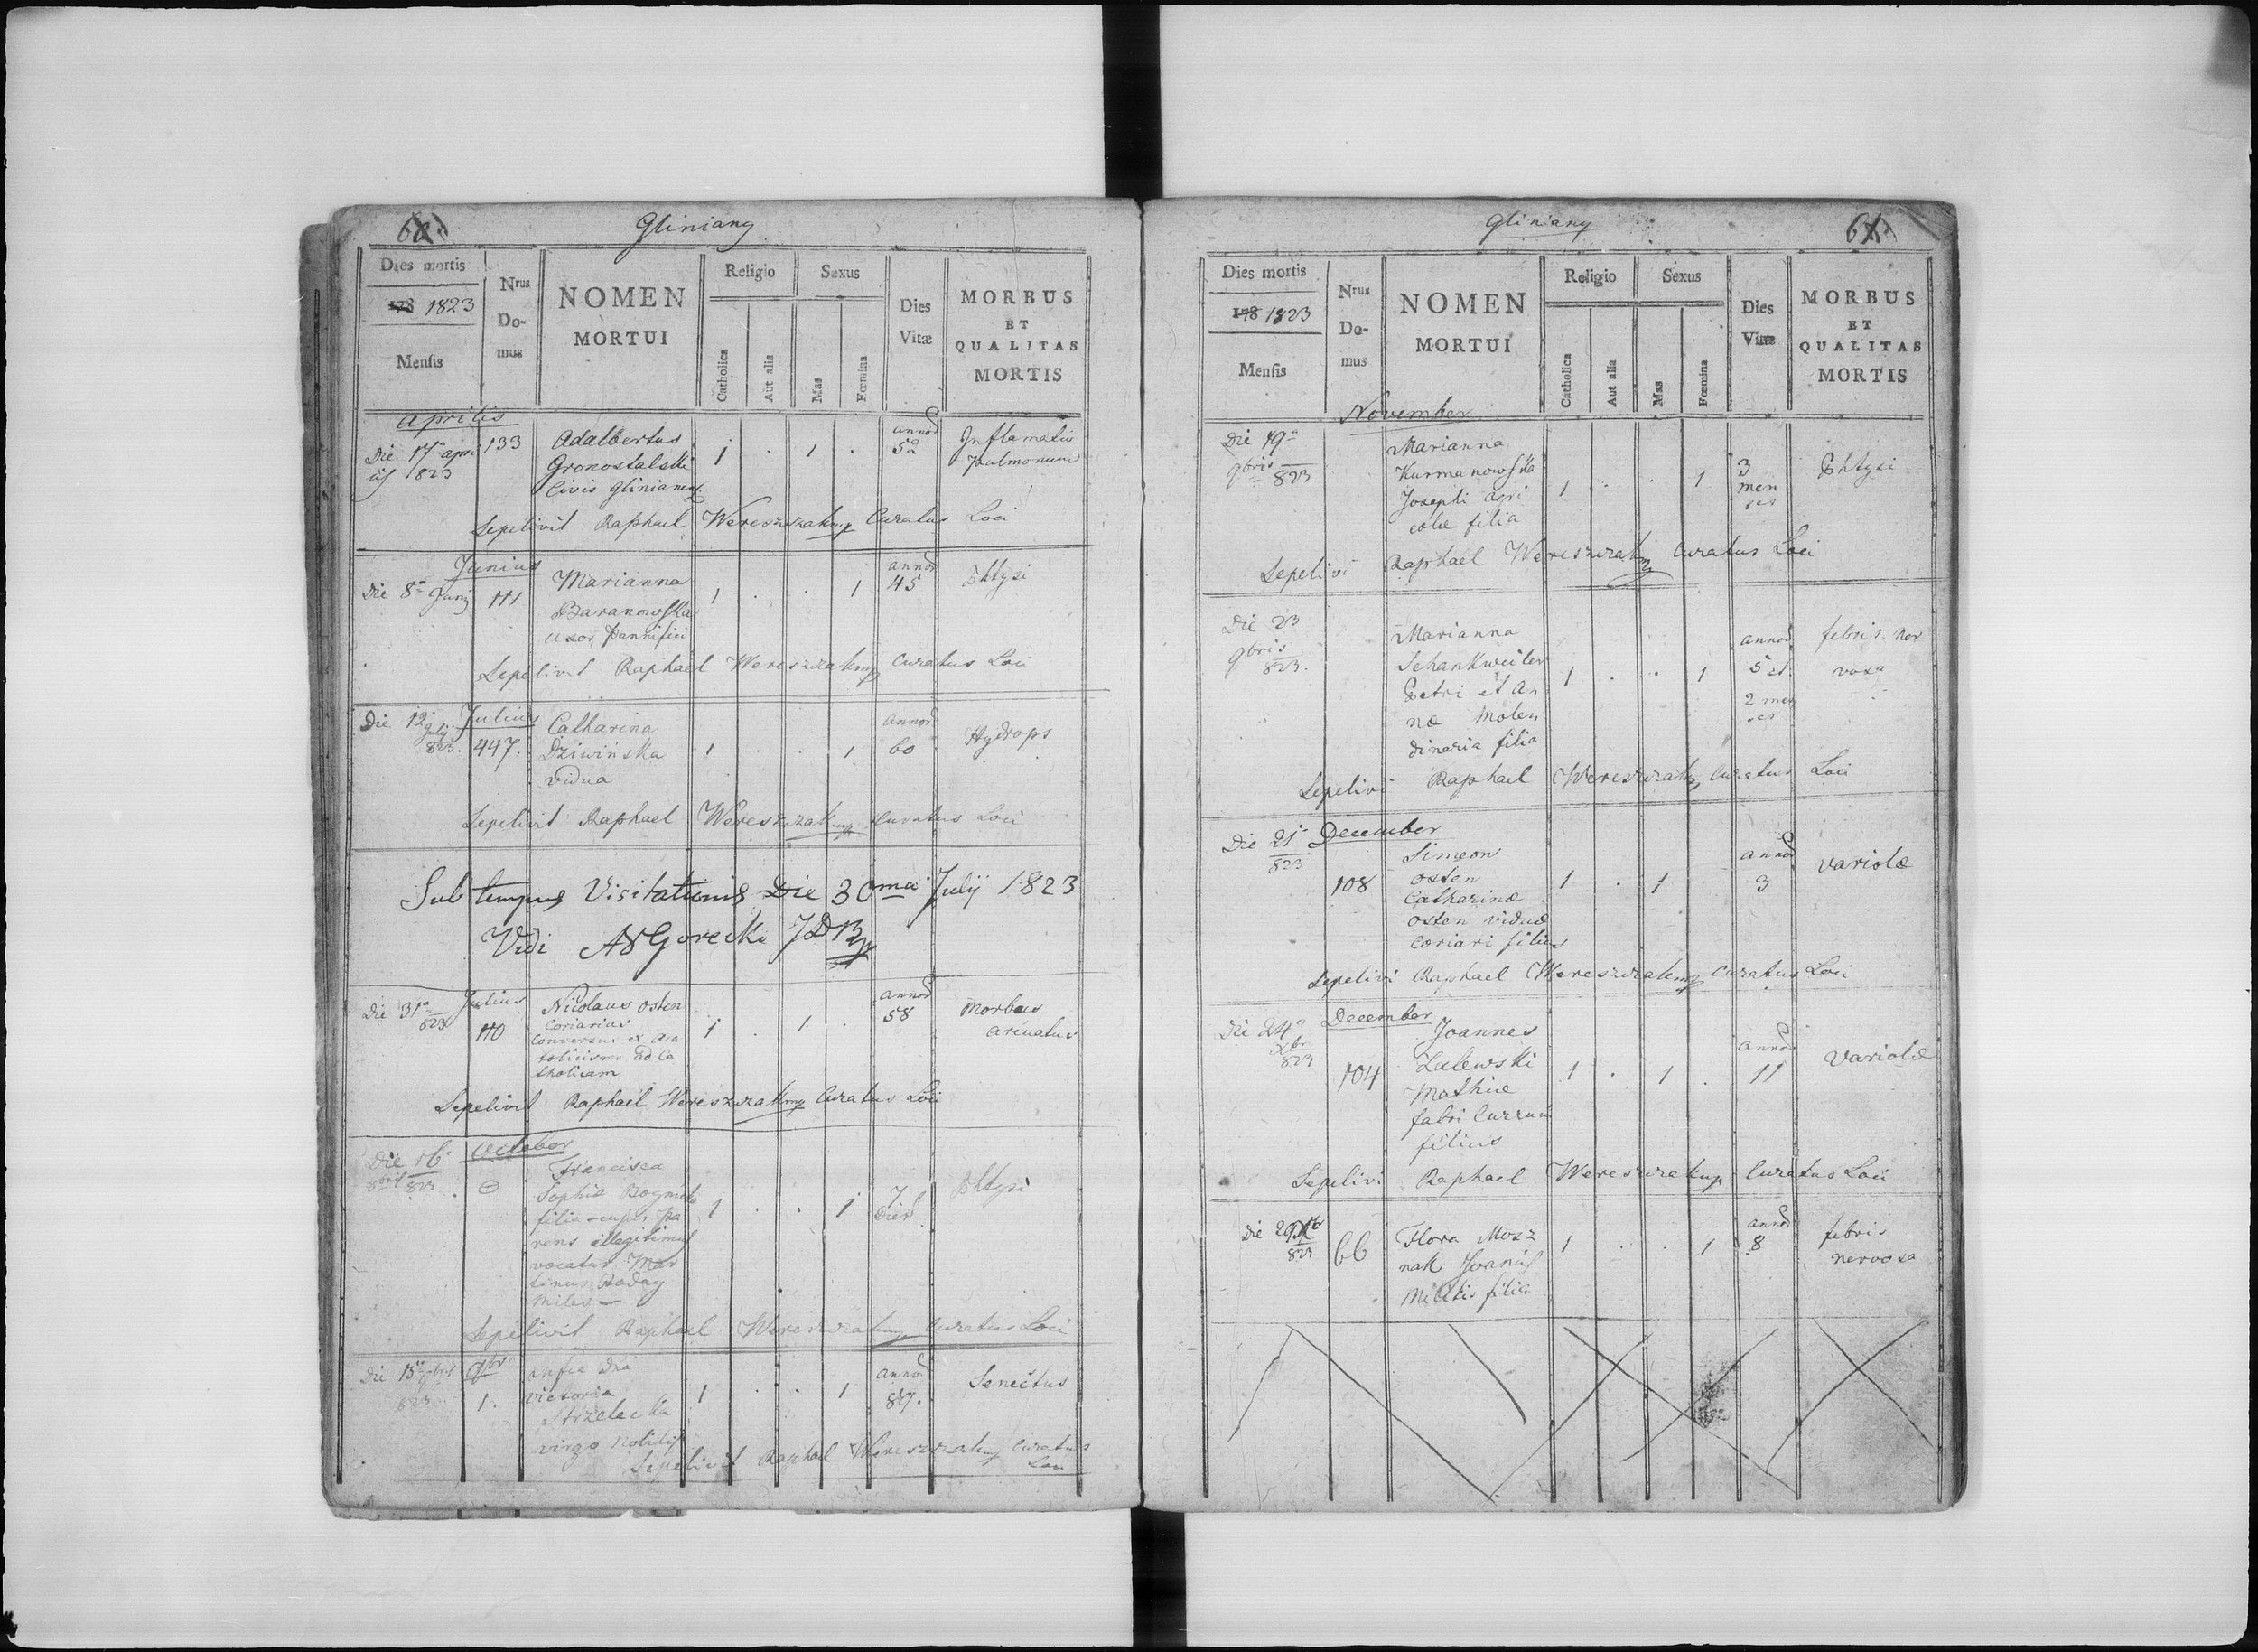 60
Gliniany
Dies mortis
178 1823
Menſis
Nrus
Do-
mus
NOMEN
MORTUI
Religio
Catholica
Aut alia
Sexus
Mas
Fœmina
Dies
Vitæ
MORBUS
ET
QUALITAS
MORTIS
Aprilis
Die 17a apri
lis 1823
133
Adalbertus
Gronostalski
Civis Glinianens
1 . 1 .
annor
52
Inflamatio
pulmonum
Sepelivit Raphael Wereszczak mp Curatus Loci
Junius
Die 8a Junij
111
Marianna
Baranowska
uxor Pannifici
1 . . 1
annor
45
Phtysi
Sepelivit Raphael Wereszczak mp Curatus Loci
Julius
Die 12
Julij
823.
447.
Catharina
Dziwińska
vidua
1 . . 1
annor
60
Hydrops
Sepelivit Raphael Wereszczak mp Curatus Loci
Sub tempus Visitationis Die 30ma Julij 1823
Vidi Gorecki
Julius
Die 31a
823
110
Nicolaus Osten
Coriarius
Conversus ex Aca
tolicismo ad Ca
tholicam
1 . 1 .
annor
58
Morbus
arcuatus
Sepelivit Raphael Wereszczak mp Curatus Loci
October
Die 16a
8bris 823
Francisca
Sophiæ
filia cujus pa
rens illegitimus
vocatur Mar
tinus
miles
1 . . 1
7
Dier
Phtysi
Sepelivit Raphael Wereszczak mp Curatus Loci
Die 15a 9bris
823
9br
1.
Victoria
Strzelecka
virgo nobilis
1 . . 1
annor
89.
Senectus
Sepelivit Raphael Wereszczak mp Curatus
Loci
Gliniany
61
Dies mortis
178 1823
Menſis
Nrus
Do-
mus
NOMEN
MORTUI
Religio
Catholica
Aut alia
Sexus
Mas
Fœmina
Dies
Vitæ
MORBUS
ET
QUALITAS
MORTIS
November
Die 19a
9bris 823
Marianna
Kurmanowska
Josephi agri
colæ filia
1 . . 1
3
men
ses
Phtysi
Sepelivi Raphael Wereszczak mp Curatus Loci
Die 23
9bris
823.
Marianna
Schankweiler
Petri et An
næ Molen
dinaria filia
1 . . 1
annor
5 et
2 men
ses
febris ner
voxa
Sepelivi Raphael Wereszczak mp Curatus Loci
December
Die 21a
823
108
Simeon
Osten
Catharinæ
Osten viduæ
Coriari filius
1 . 1 .
annor
3
variolæ
Sepelivi Raphael Wereszczak mp Curatus Loci
December
Die 24a
Xbr
823
104
Joannes
Zalewski
Mathiæ
fabri Currum
filius
1 . 1 .
annor
11
Variolæ
Sepelivi Raphael Wereszczak mp Curatus Loci
Die 29 Xbr
823
66
Flora Mosz
nak Joanis
Militis filia
1 . . 1
annor
8
febris
nervoxa